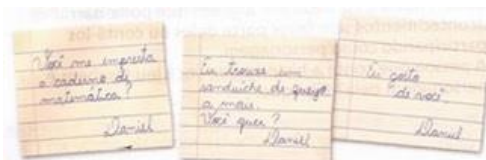 Você me empresta
o caderno de
matemática?
Daniel
Eu trouxe um
sanduíche de queijo
a mais.
Você quer?
Daniel
Eu gosto
de você.
Daniel